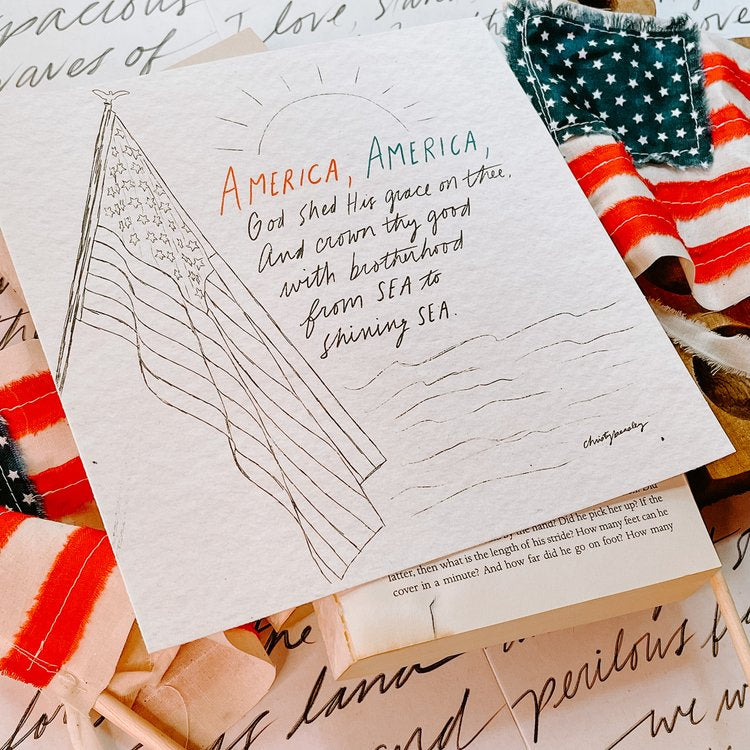 spacious
waves of
I love,
America, America,
God shed His grace on thee.
And crown thy good
with brotherhood
from SEA to
shining SEA.
christybeasley
by the hand? Did he pick her up? If the
latter, then what is the length of his stride? How many feet can he
cover in a minute? And how far did he go on foot? How many
the land
perilous
and
we